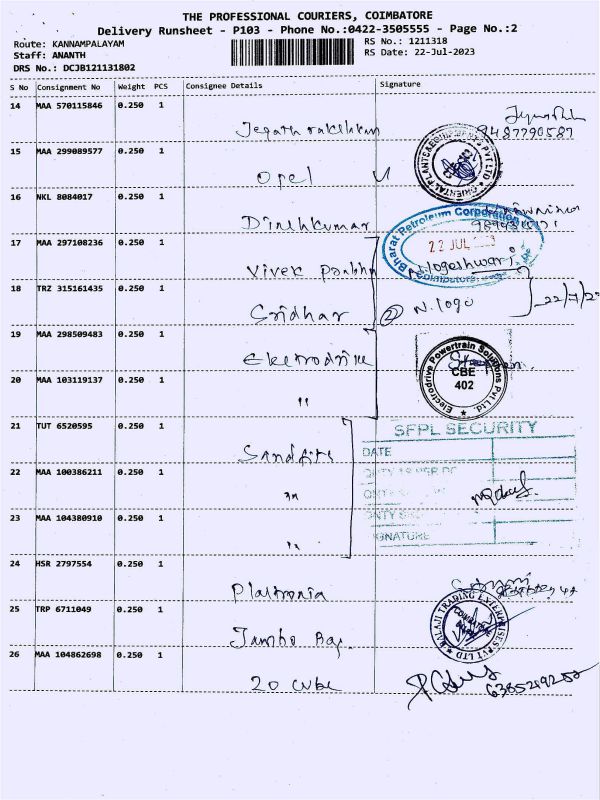 THE PROFESSIONAL COURIERS, COIMBATORE
Delivery Runsheet - P103 - Phone No.:0422-3505555 - Page No.:2
Route: KANNAMPALAYAM
RS No.: 1211318
Staff: ANANTH
RS Date: 22-Jul-2023
DRS No.: DCJB121131802
S No Consignment No Weight PCS Consignee Details Signature
14 MAA 570115846 0.250 1
9487790587
15 MAA 299089577 0.250 1
Opel
16 NKL 8084017 0.250 1
Dineshkumar
17 MAA 297108236 0.250 1
Bharat Petroleum Corporation
22 JUL
Vivek N.logeshwari
Coimbatore
18 TRZ 315161435 0.250 1
Sridhar 2 N.logo
19 MAA 298509483 0.250 1
Electrodrive Powertrain Solutions Pvt Ltd.
CBE
402
20 MAA 103119137 0.250 1
"
21 TUT 6520595 0.250 1
SFPL SECURITY
DATE
22 MAA 100386211 0.250 1
23 MAA 104380910 0.250 1
"
SIGNATURE
24 HSR 2797554 0.250 1
Plastronia
25 TRP 6711049 0.250 1
BALAJI TRADING ENTERPRISES PVT LTD
COIMBATORE
Jumbo Bag
26 MAA 104862698 0.250 1
20 cube